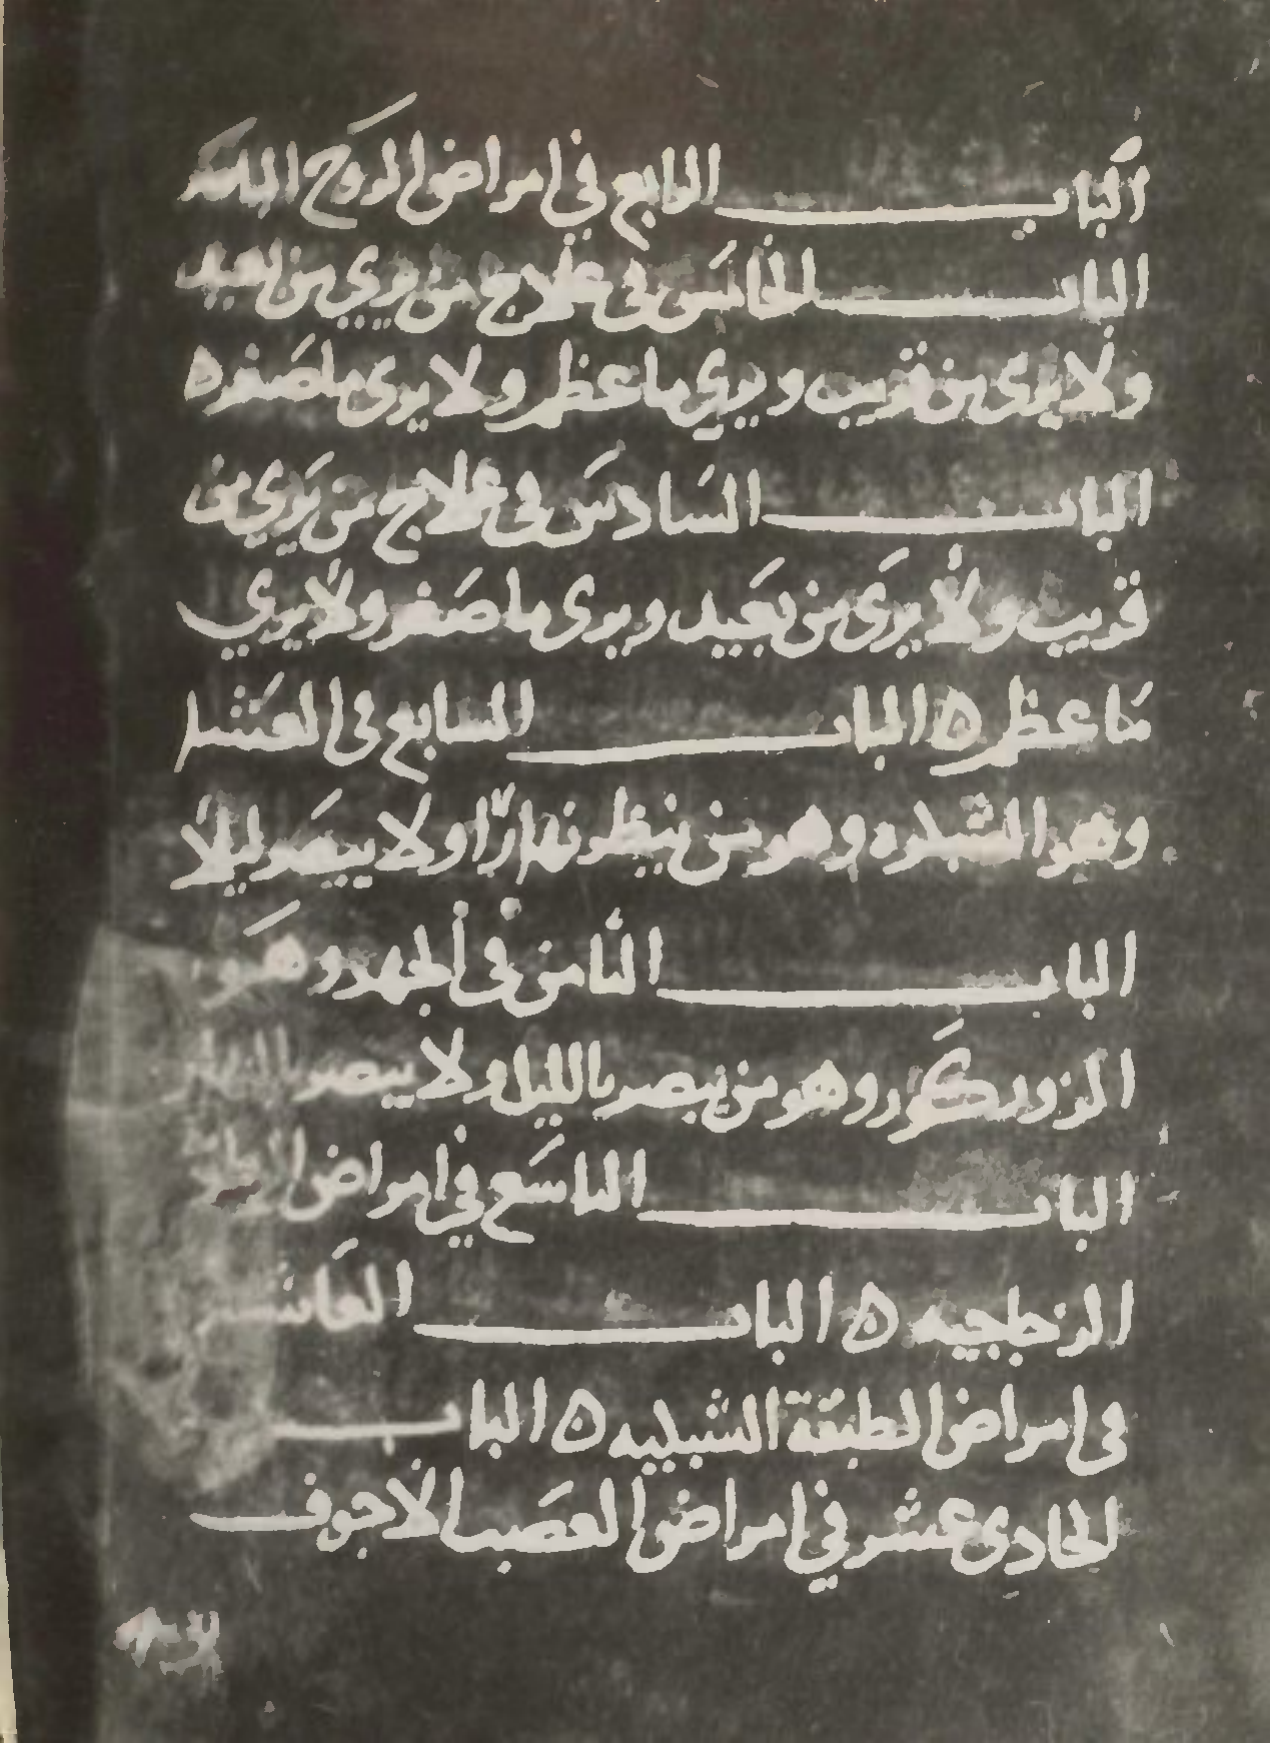 الباب الرابع في امراض الروح الباصر
الباب الخامس في علاج من يري من بعيد
ولا يرى من قريب ويري ما عظم ولا يرى ما صغر ه
الباب السادس في علاج من يري من
قريب ولا يرى من بعيد ويرى ما صغر ولا يري
ما عظم ه الباب السابع في العشا
وهو الشبكره وهو من ينظر نهارًا ولا يبصر ليلا
الباب الثامن في الجهر وهو
الروزكور وهو من يبصر بالليل ولا يبصر بالنهار
الباب التاسع في امراض الرطوبة
الزجاجيه ه الباب العاشر
في امراض الطبقة الشبكيه ه الباب
الحادي عشر في امراض العصب الاجوف